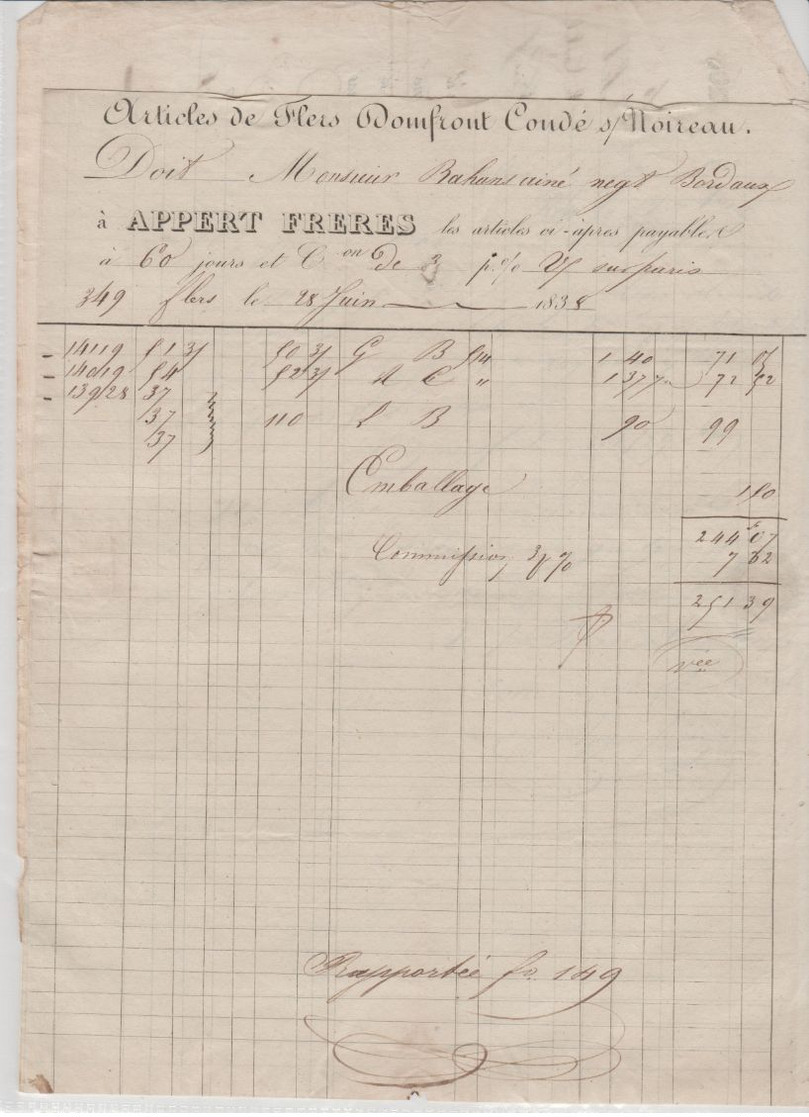 Articles de Flers Domfront Condé s/ Noireau.
Doit Monsieur Bahans ainé negt Bordaux
à APPERT FRERES les articles ci-après payables
à 60 jours et C.on de 3 p.% V/ sur paris
349 flers le 28 Juin 1838
14119 51 3/ 50 3/ G B 5/4 1 40 71 05
14019 54 52 3/ A C " 1 37 72 52
139/28 37
37 110 L B 90 99
37
Emballage 1 50
244 07
Commission 3 p% 7 32
251 39
vée
Rapportée fo. 149